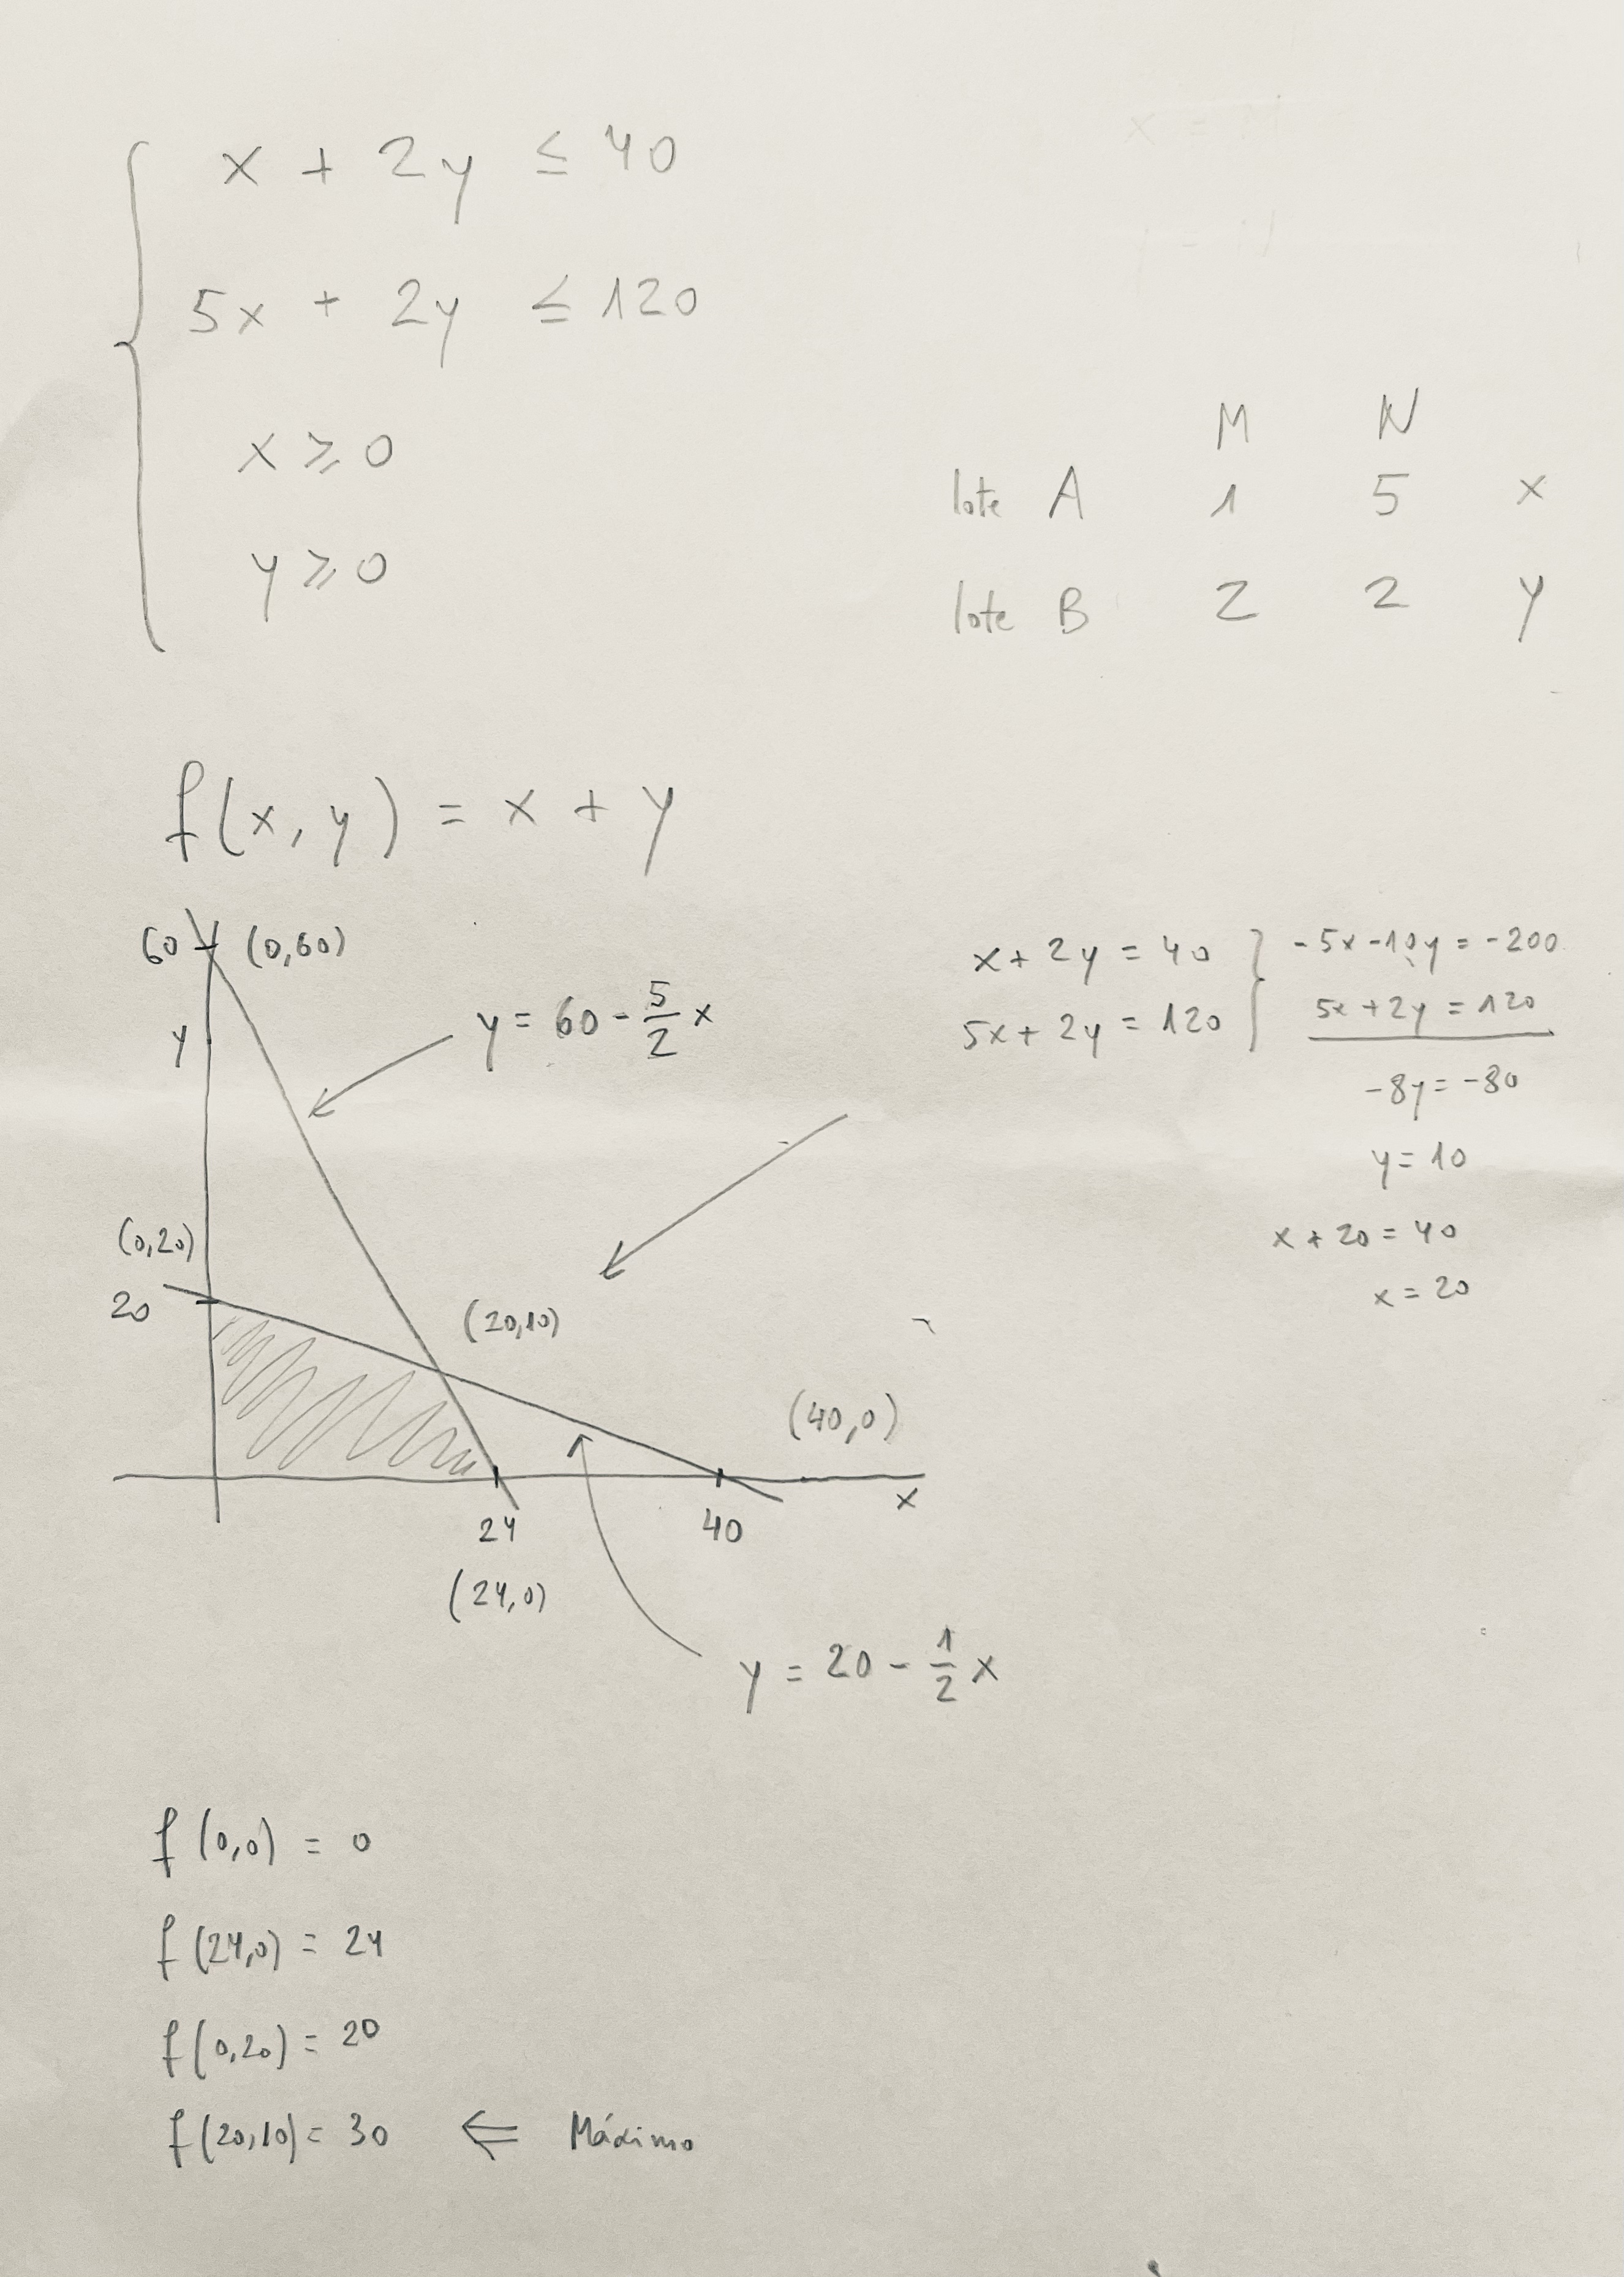 x + 2y ≤ 40
5x + 2y ≤ 120
x ≥ 0
y ≥ 0
M N
lote A 1 5 x
lote B 2 2 y
f(x, y) = x + y
60 (0,60)
y
y = 60 - 5/2 x
(0,20)
20
(20,10)
(40,0)
x
24
40
(24,0)
y = 20 - 1/2 x
x + 2y = 40 } -5x -10y = -200
5x + 2y = 120 } 5x + 2y = 120
-8y = -80
y = 10
x + 20 = 40
x = 20
f(0,0) = 0
f(24,0) = 24
f(0,20) = 20
f(20,10) = 30 ⇐ Máximo